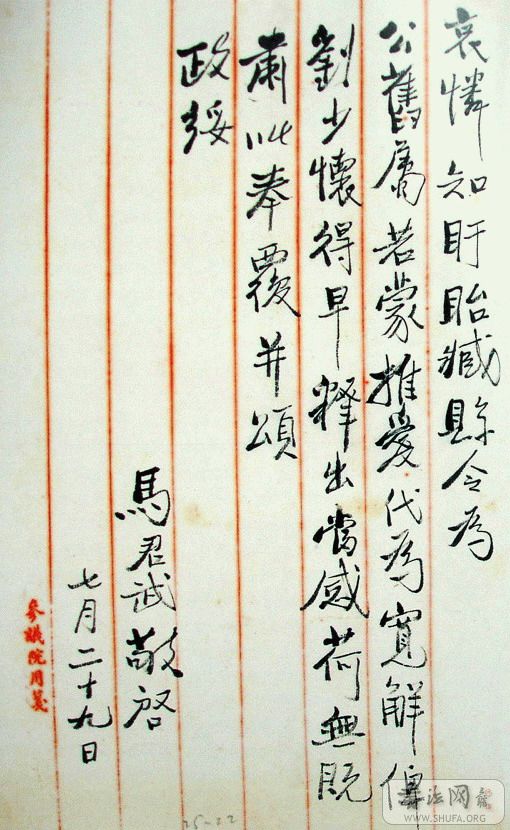 哀憐知盱眙臧縣令為
公舊屬若蒙推愛代為寬解俾
劉少懷得早釋出當感荷無既
肅此奉覆并頌
政綏
馬君武敬啓
七月二十九日
參議院用箋
25-22
书法网
WWW.SHUFA.ORG